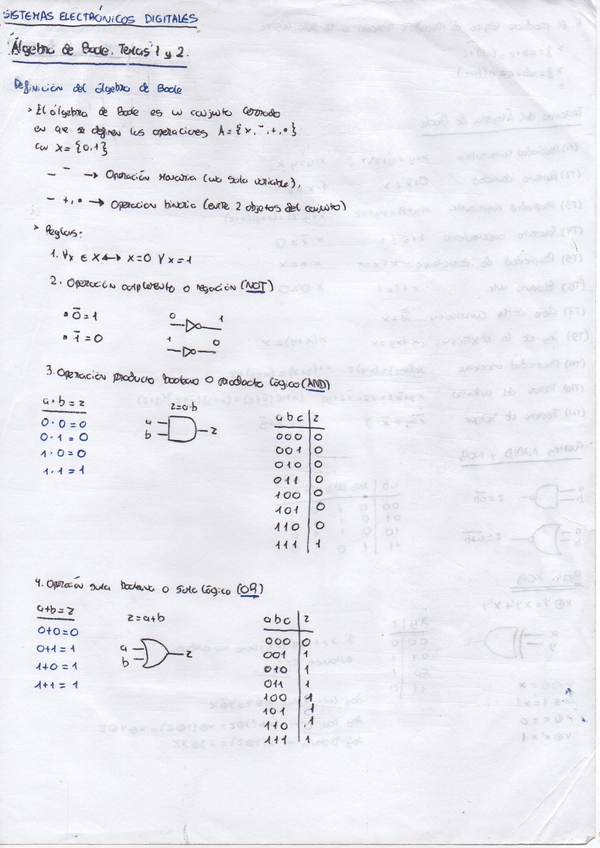 SISTEMAS ELECTRÓNICOS DIGITALES
Álgebra de Boole. Temas 1 y 2.
Definición del álgebra de Boole
> El álgebra de Boole es un conjunto cerrado
en que se definen las operaciones A = {x, ‾, +, •}
con X = {0,1}
— ‾ → Operación monaria (una sola variable),
— +, • → Operación binaria (entre 2 objetos del conjunto)
> Reglas:
1. ∀x ∈ X ↔ x=0 ∨ x=1
2. Operación complemento o negación (NOT)
• 0̄ = 1
0 1
• 1̄ = 0
1 0
3. Operación producto booleano o producto lógico (AND)
a · b = z
z = a·b
a b c | z
0 · 0 = 0
a
b
z
0 0 0 | 0
0 · 1 = 0
0 0 1 | 0
1 · 0 = 0
0 1 0 | 0
1 · 1 = 1
0 1 1 | 0
1 0 0 | 0
1 0 1 | 0
1 1 0 | 0
1 1 1 | 1
4. Operación suma booleana o suma lógica (OR)
a+b = z
z = a+b
a b c | z
0+0 = 0
a
b
z
0 0 0 | 0
0+1 = 1
0 0 1 | 1
1+0 = 1
0 1 0 | 1
1+1 = 1
0 1 1 | 1
1 0 0 | 1
1 0 1 | 1
1 1 0 | 1
1 1 1 | 1